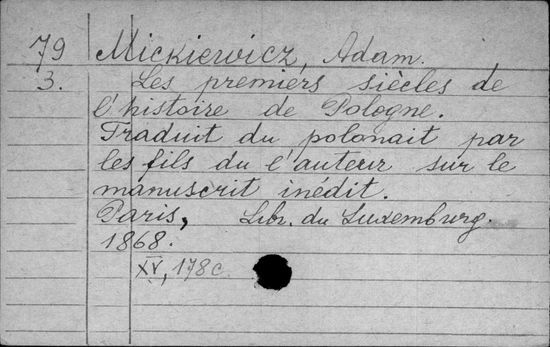 79 Mickiewicz, Adam.
3. Les premiers siècles de
l'histoire de Pologne.
Traduit du polonait par
les fils du l'auteur sur le
manuscrit inédit.
Paris, Libr. du Luxemburg.
1868.
XV, 178 c.